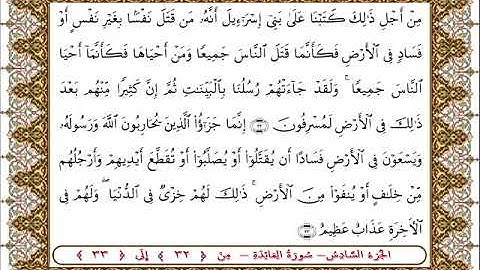 مِنْ أَجْلِ ذَٰلِكَ كَتَبْنَا عَلَىٰ بَنِىٓ إِسْرَٰٓءِيلَ أَنَّهُۥ مَن قَتَلَ نَفْسًۢا بِغَيْرِ نَفْسٍ أَوْ
فَسَادٍ فِى ٱلْأَرْضِ فَكَأَنَّمَا قَتَلَ ٱلنَّاسَ جَمِيعًا وَمَنْ أَحْيَاهَا فَكَأَنَّمَآ أَحْيَا
ٱلنَّاسَ جَمِيعًا ۚ وَلَقَدْ جَآءَتْهُمْ رُسُلُنَا بِٱلْبَيِّنَٰتِ ثُمَّ إِنَّ كَثِيرًا مِّنْهُم بَعْدَ
ذَٰلِكَ فِى ٱلْأَرْضِ لَمُسْرِفُونَ ۝٣٢ إِنَّمَا جَزَٰٓؤُا۟ ٱلَّذِينَ يُحَارِبُونَ ٱللَّهَ وَرَسُولَهُۥ
وَيَسْعَوْنَ فِى ٱلْأَرْضِ فَسَادًا أَن يُقَتَّلُوٓا۟ أَوْ يُصَلَّبُوٓا۟ أَوْ تُقَطَّعَ أَيْدِيهِمْ وَأَرْجُلُهُم
مِّنْ خِلَٰفٍ أَوْ يُنفَوْا۟ مِنَ ٱلْأَرْضِ ۚ ذَٰلِكَ لَهُمْ خِزْىٌ فِى ٱلدُّنْيَا ۖ وَلَهُمْ فِى
ٱلْءَاخِرَةِ عَذَابٌ عَظِيمٌ ۝٣٣
الجزء السَّادِسُ – سُورَةُ المَائِدَةِ – مِنْ ﴿ ٣٢ ﴾ إِلَى ﴿ ٣٣ ﴾